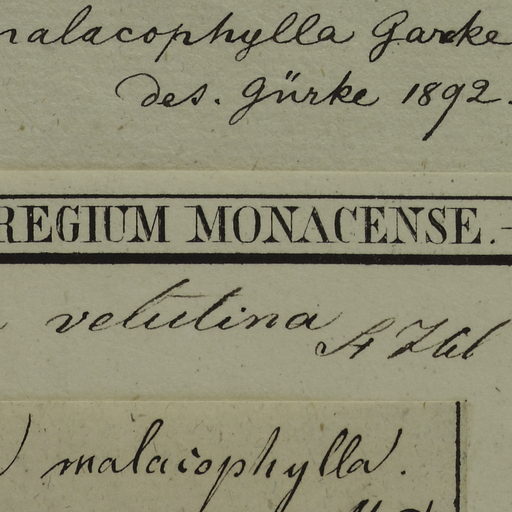 malacophylla Garcke
des. Gürke 1892.
REGIUM MONACENSE.
velutina A St Hil
malacophylla.